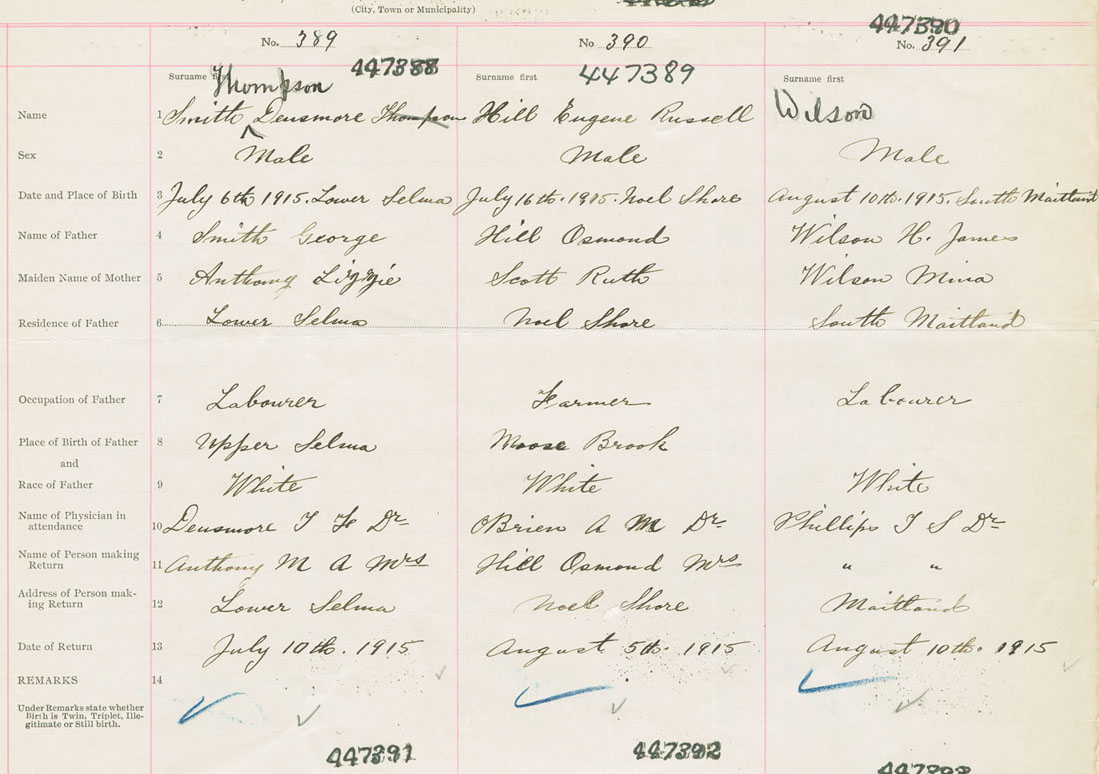 (City, Town or Municipality)
447390
No. 389 No. 390 No. 391
447388 447389
Surname first Surname first Surname first
Thompson
Name 1 Smith Densmore Thompson Hill Eugene Russell Wilson
Sex 2 Male Male Male
Date and Place of Birth 3 July 6th 1915. Lower Selma July 16th. 1915. Noel Shore August 10th. 1915. South Maitland
Name of Father 4 Smith George Hill Osmond Wilson H. James
Maiden Name of Mother 5 Anthony Lizzie Scott Ruth Wilson Mina
Residence of Father 6 Lower Selma Noel Shore South Maitland
Occupation of Father 7 Labourer Farmer Labourer
Place of Birth of Father 8 Upper Selma Moose Brook
and
Race of Father 9 White White White
Name of Physician in
attendance 10 Densmore T F Dr OBrien A M Dr Phillips T S Dr
Name of Person making
Return 11 Anthony M A Mrs Hill Osmond Mrs " "
Address of Person mak-
ing Return 12 Lower Selma Noel Shore Maitland
Date of Return 13 July 10th. 1915 August 5th. 1915 August 10th. 1915
REMARKS 14
Under Remarks state whether
Birth is Twin, Triplet, Ille-
gitimate or Still birth.
447391 447392